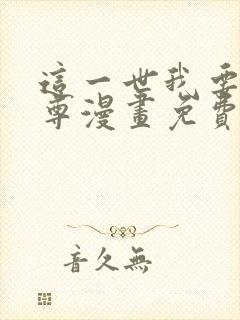 這一世我要
尊漫畫免費
音久無